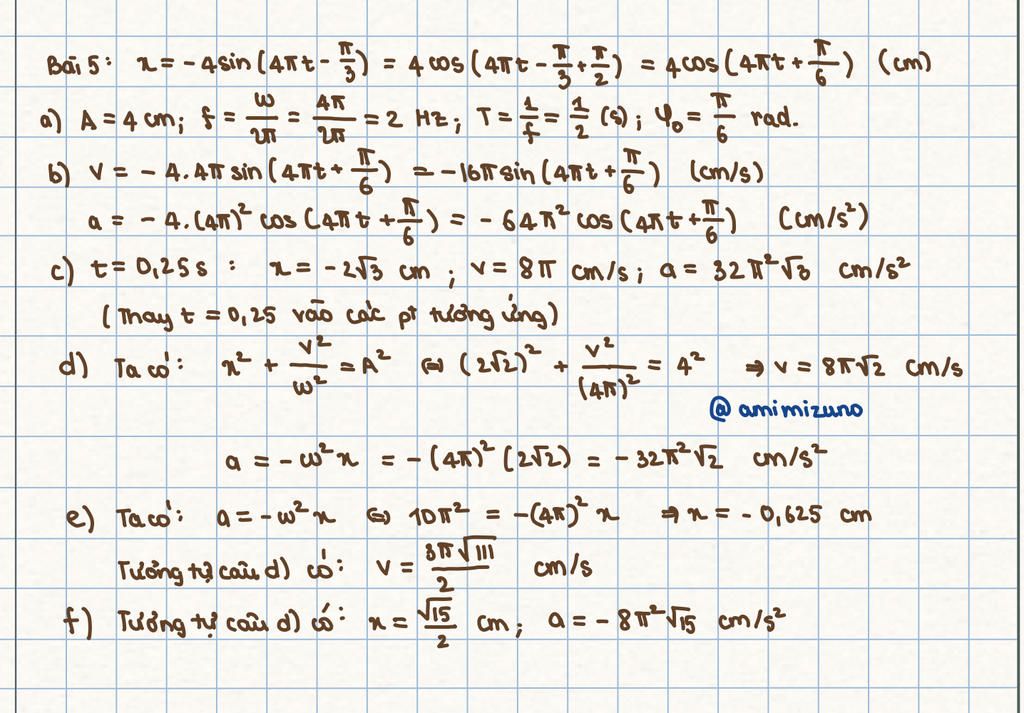 Bài 5: x = -4sin(4πt - π/3) = 4cos(4πt - π/3 + π/2) = 4cos(4πt + π/6) (cm)
a) A = 4 cm; f = ω/2π = 4π/2π = 2 Hz; T = 1/f = 1/2 (s); φ₀ = π/6 rad.
b) v = -4.4π sin(4πt + π/6) = -16π sin(4πt + π/6) (cm/s)
a = -4.(4π)² cos(4πt + π/6) = -64π² cos(4πt + π/6) (cm/s²)
c) t = 0,25 s : x = -2√3 cm ; v = 8π cm/s ; a = 32π²√3 cm/s²
(Thay t = 0,25 vào các pt tương ứng)
d) Ta có: x² + v²/ω² = A² ⇔ (2√2)² + v²/(4π)² = 4² ⇒ v = 8π√2 cm/s
@amimizuno
a = -ω²x = -(4π)²(2√2) = -32π²√2 cm/s²
e) Ta có: a = -ω²x ⇔ 10π² = -(4π)²x ⇒ x = -0,625 cm
Tương tự câu d) có: v = 3π√111/2 cm/s
f) Tương tự câu d) có: x = √15/2 cm; a = -8π²√15 cm/s²